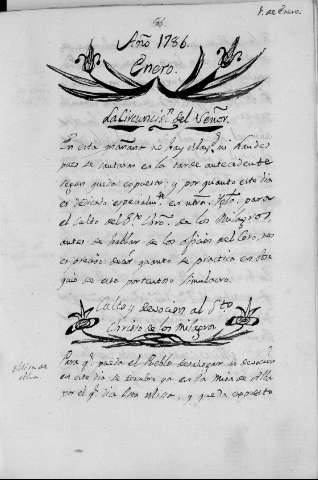 1. de Enero.
Año 1786.
Enero.
La Circuncis.n del Señor.
En esta mañana no hay Maytines, ni Laudes
pues se cantaron en la tarde antecedente
segun queda expuesto: y por quanto este dia
es dedicado especialm.te en ntra. Ygla. para
el Culto del S.to Christo de los Milagros,
antes de hablar de los oficios del Coro, nos
es preciso decir quanto se practica en obse
quio de este portentoso Simulacro.
Culto y devocion al S.to
Christo de los Milagros
Missa de
Alva.
Para q.e pueda el Pueblo desahogar su devocion
en este dia se descubre ya en la Missa de Alva
por el q.e dia esta Missa, y queda expuesto